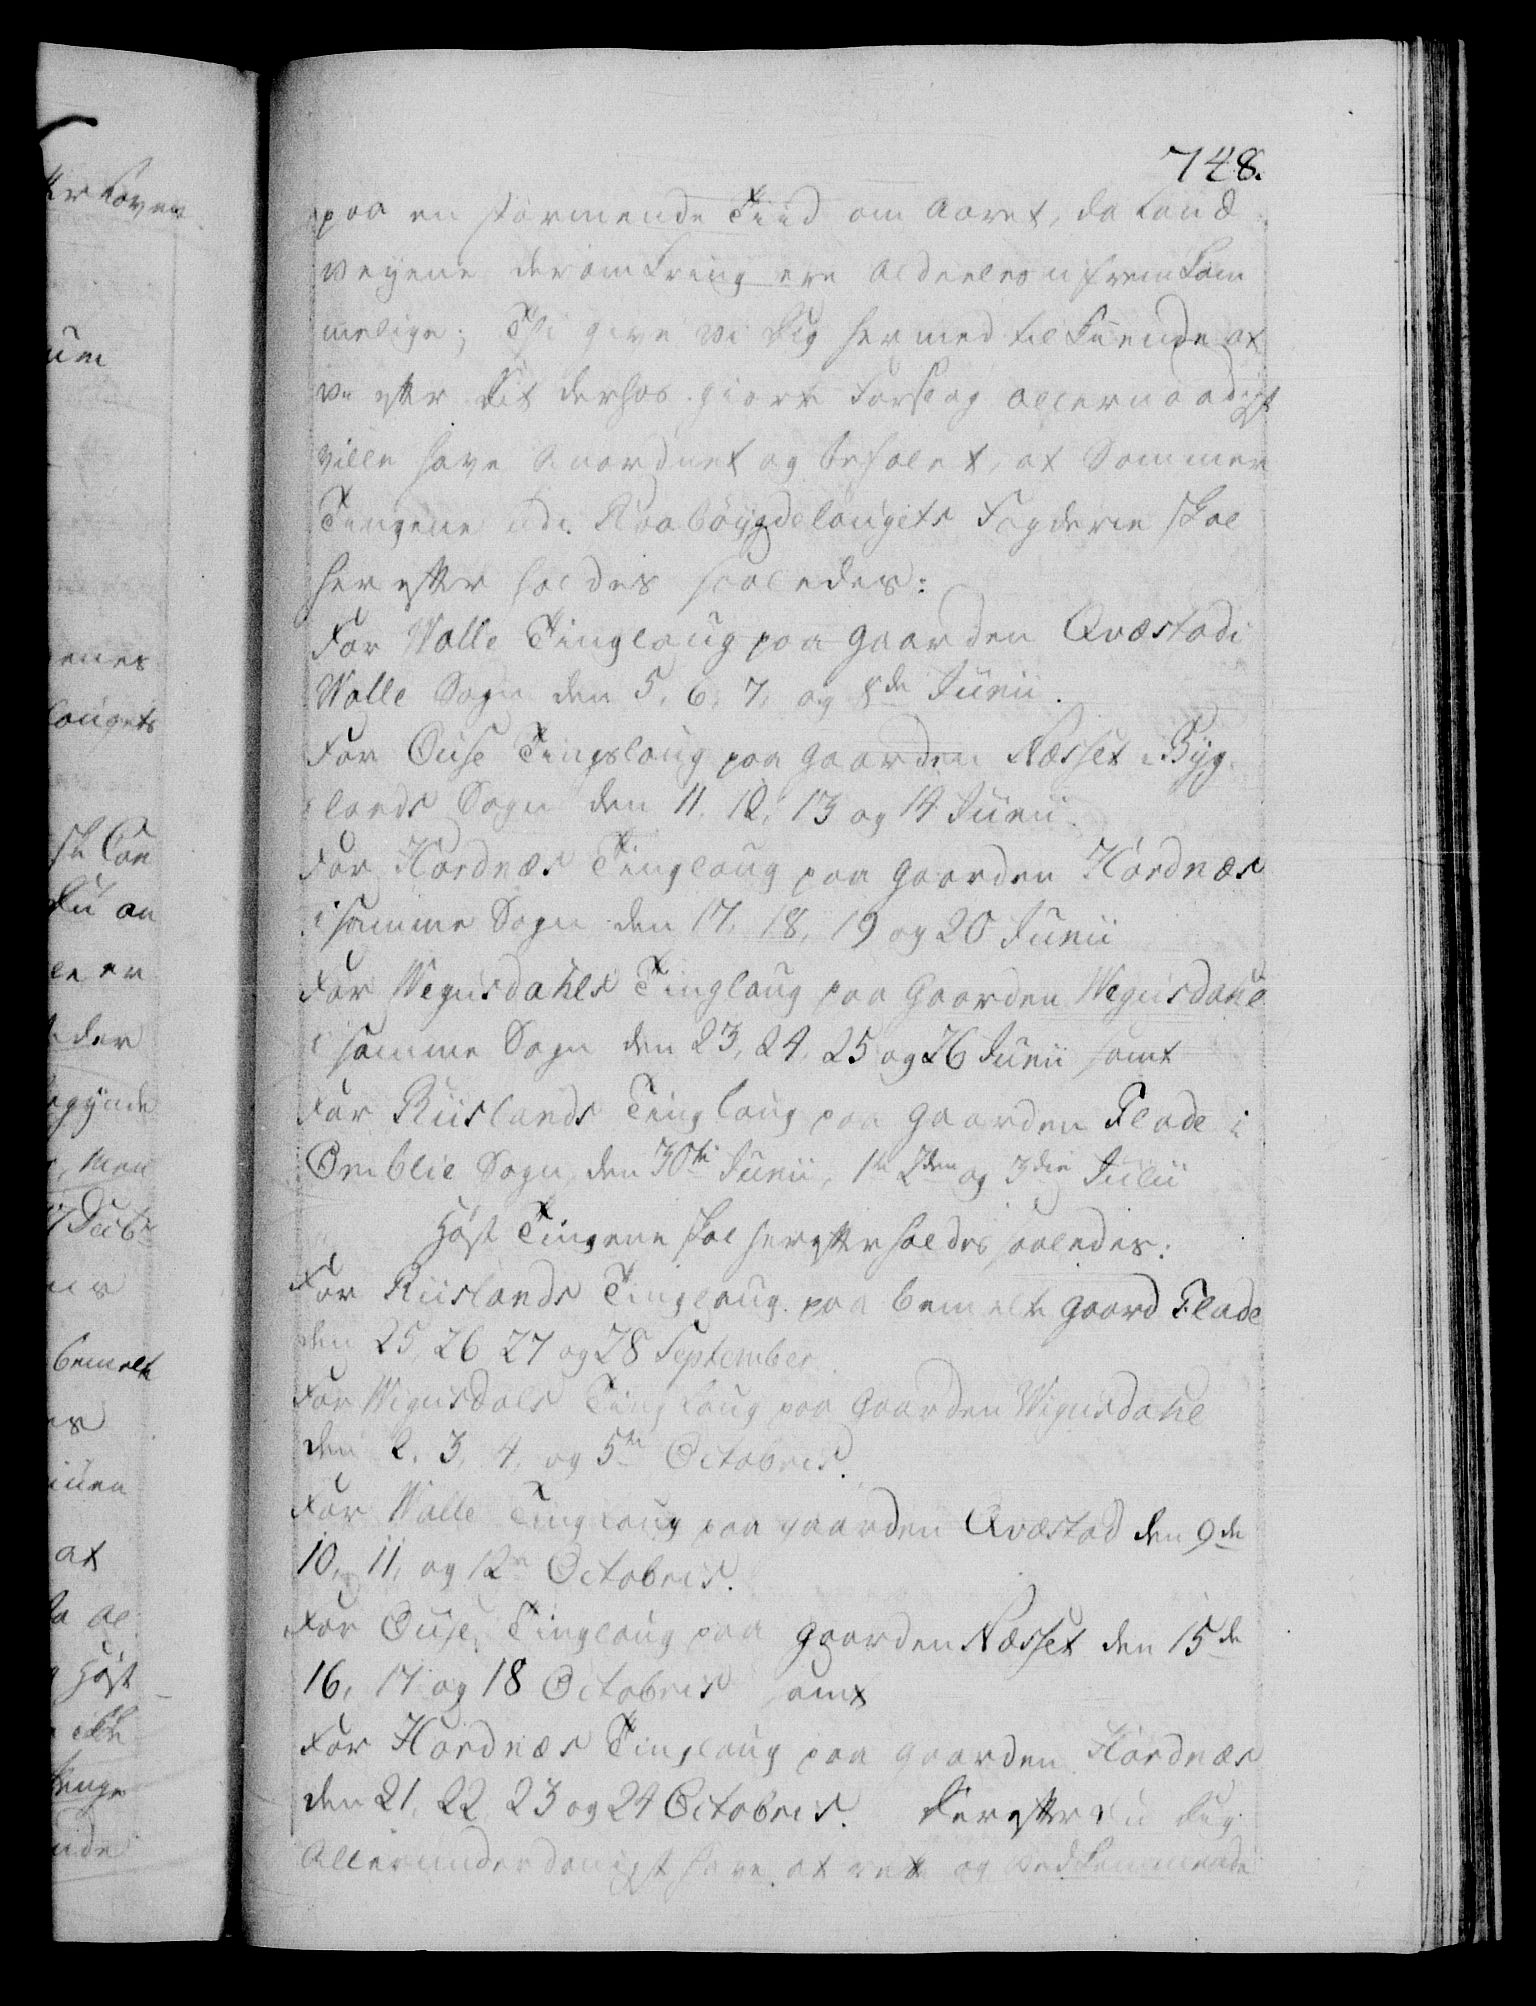 748.
paa en stormende Tiid om Aaret, da Land
veyene deromkring ere aldeeles ufremkom
melige; Thi give vi dig hermed tilkiende at
vi efter dit derhos giorte Forslag allernaadigst
ville have anordnet og befalet, at Sommer
Tingene udi Raabøygdelaugets Fogderie skal
herefter holdes saaledes:
For Walle Tinglaug paa Gaarden Qvæstad i
Walle Sogn den 5, 6, 7, og 8de Junii.
For Ouse Tingslaug paa Gaarden Næsset i Byg
lands Sogn den 11, 12, 13 og 14 Junii.
For Hordnæs Tinglaug paa Gaarden Hordnæs
i samme Sogn den 17, 18, 19 og 20 Junii
For Wegusdahls Tinglaug paa Gaarden Wegusdahl
i samme Sogn den 23, 24, 25 og 26 Junii samt
For Riislands Tinglaug paa Gaarden Flade i
Omblie Sogn den 30te Junii, 1te 2den og 3die Julii
Høst Tingene skal herefter holdes saaledes:
For Riislands Tinglaug paa bemelte Gaard Flade
den 25, 26 27 og 28 September
For Wegusdals Tinglaug paa Gaarden Wigusdahl
den 2. 3, 4, og 5te Octobris.
For Walle Tinglaug paa Gaarden Qvæstad den 9de
10, 11, og 12te Octobris.
For Ouse Tinglaug paa Gaarden Næsset den 15de
16, 17 og 18 Octobris samt
For Hordnæs Tinglaug paa Gaarden Hordnæs
den 21, 22 23 og 24 Octobris. Derefter du dig
allerunderdanigst have at rette og vedkommende